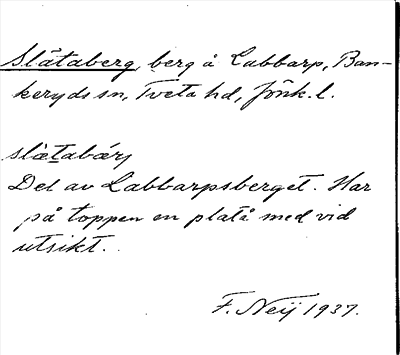 Slätaberg, berg å Labbarp, Ban-
keryds sn, Tveta hd, Jönk. l.
slätabärj
Del av Labbarpsberget. Har
på toppen en platå med vid
utsikt.
F. Neij 1937.